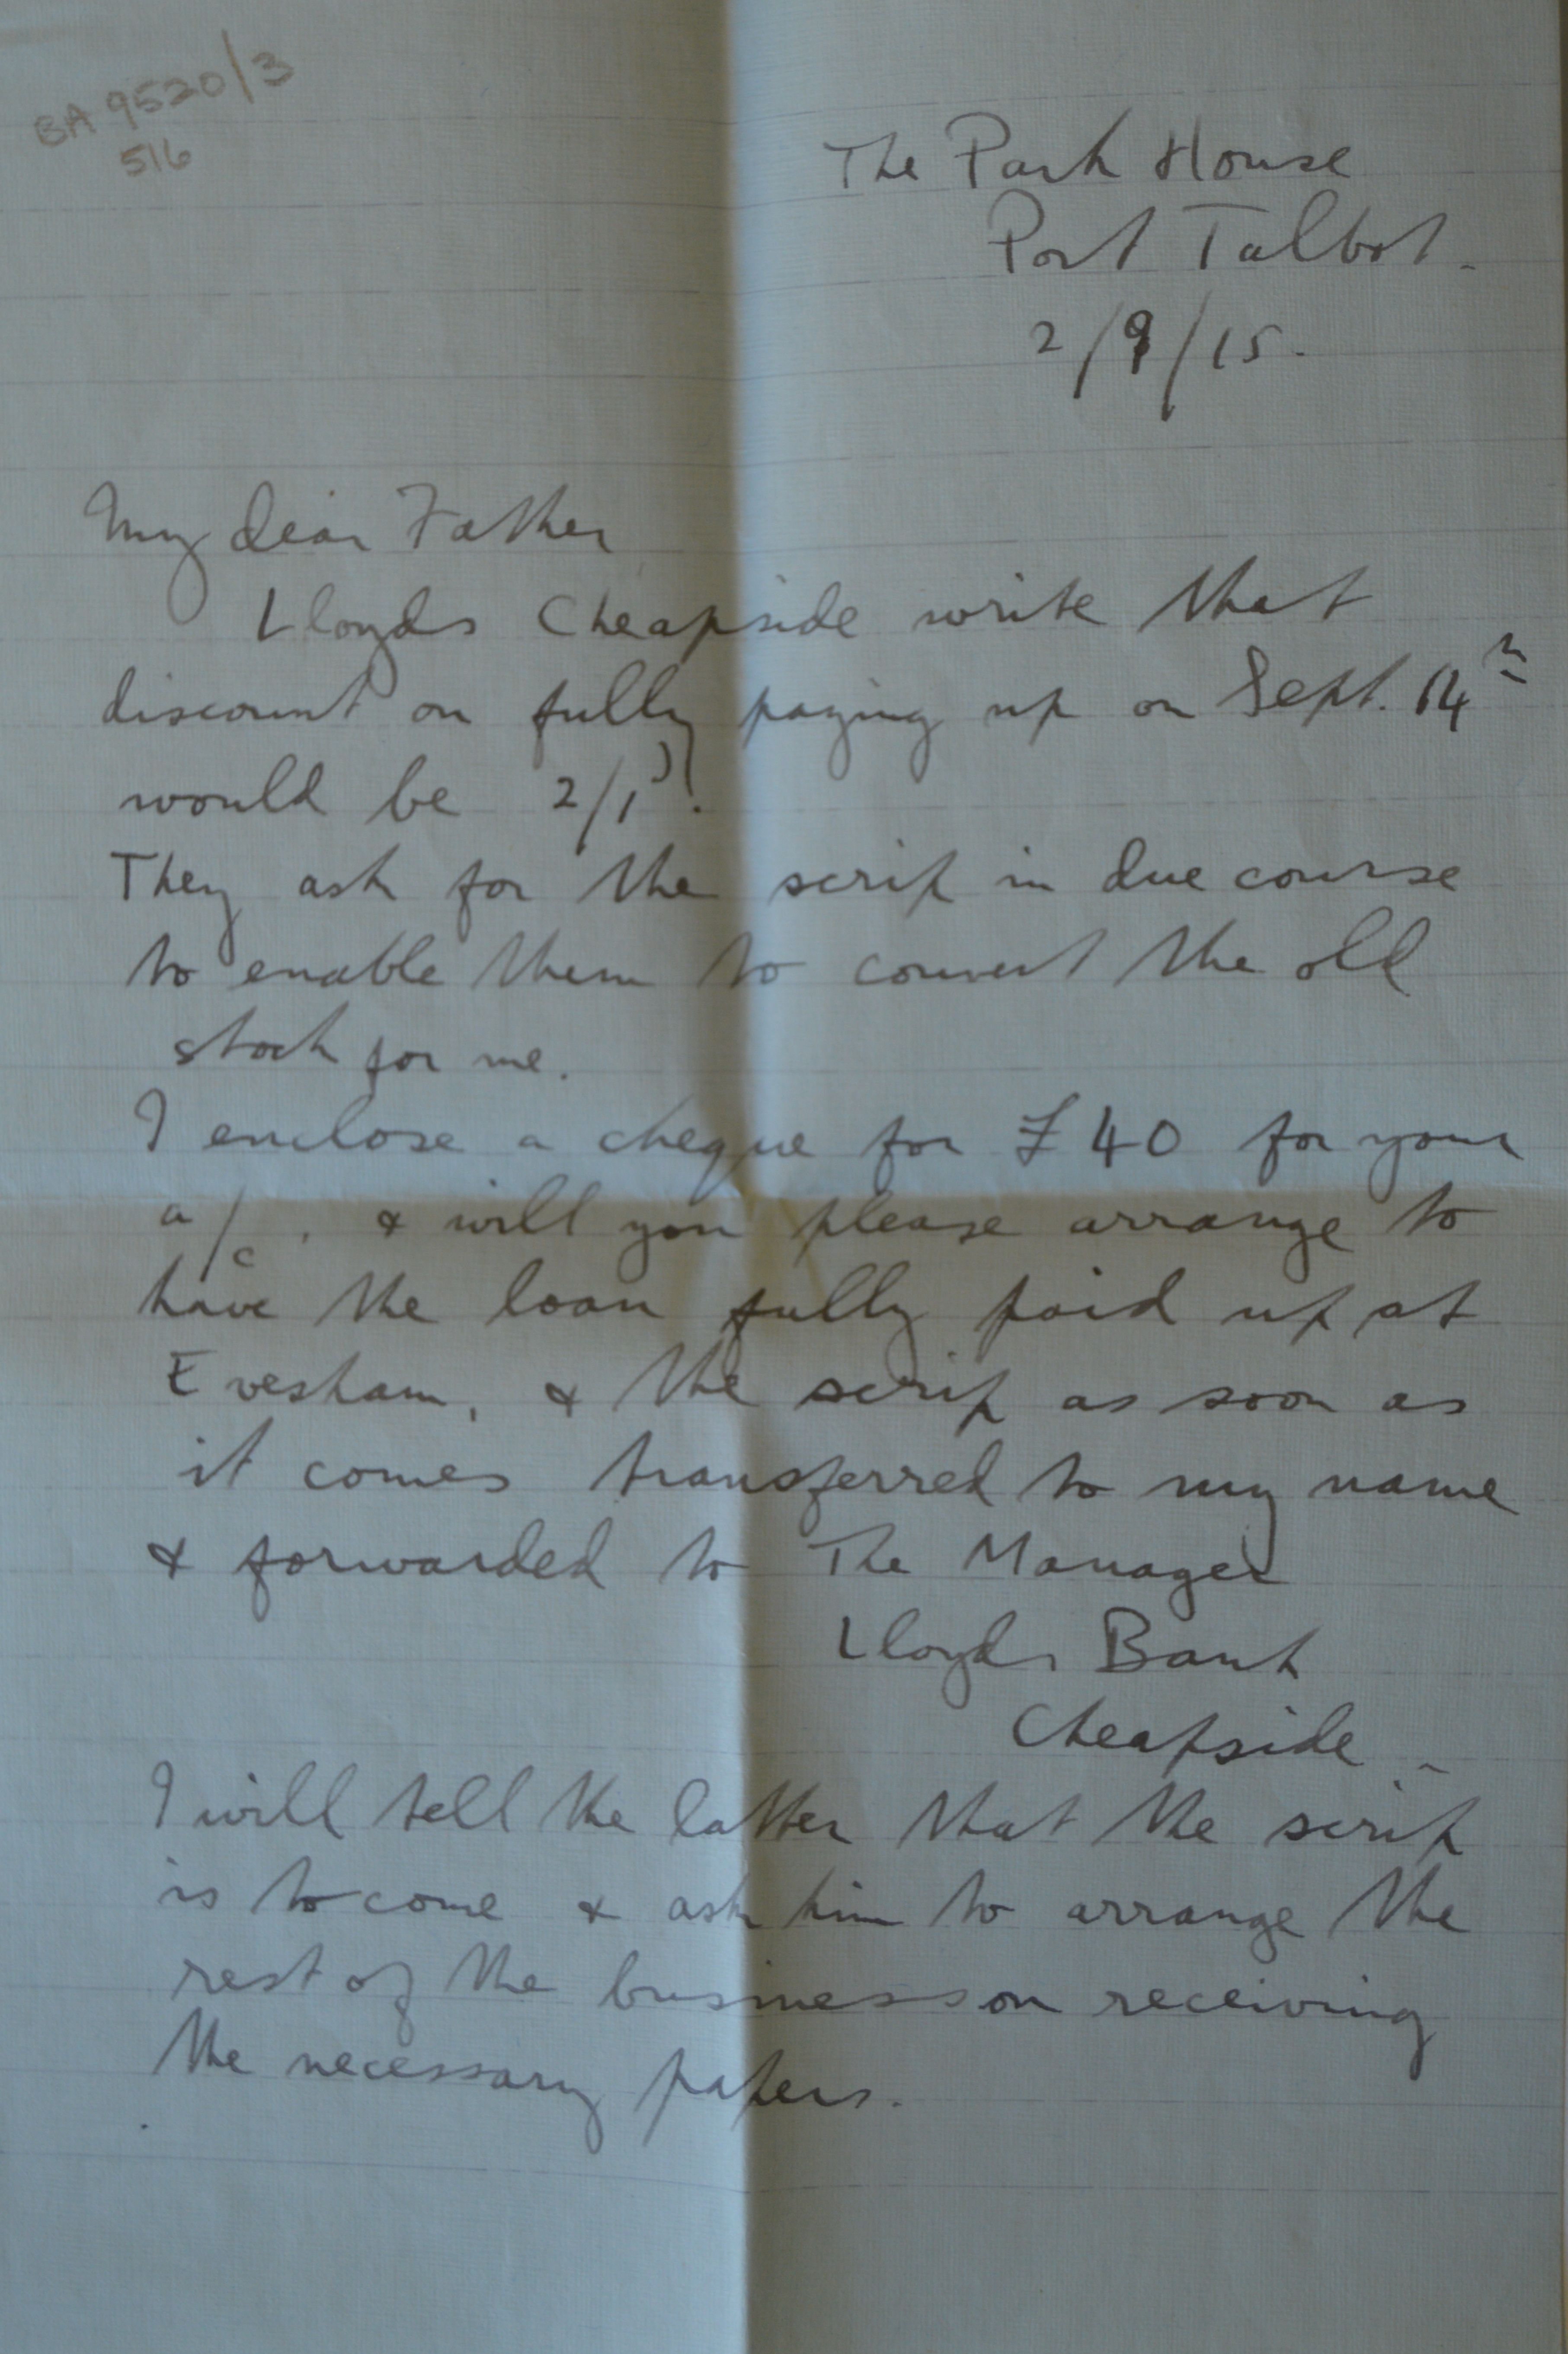 BA 9520/3
516
The Park House
Port Talbot.
2/9/15.
My dear Father
Lloyds Cheapside write that
discount on fully paying up on Sept. 14th
would be 2/1.
They ask for the scrip in due course
to enable them to convert the old
stock for me.
I enclose a cheque for £40 for your
a/c, & will you please arrange to
have the loan fully paid up at
Evesham, & the scrip as soon as
it comes transferred to my name
& forwarded to The Manager
Lloyds Bank
Cheapside -
I will tell the latter that the scrip
is to come & ask him to arrange the
rest of the business on receiving
the necessary papers.